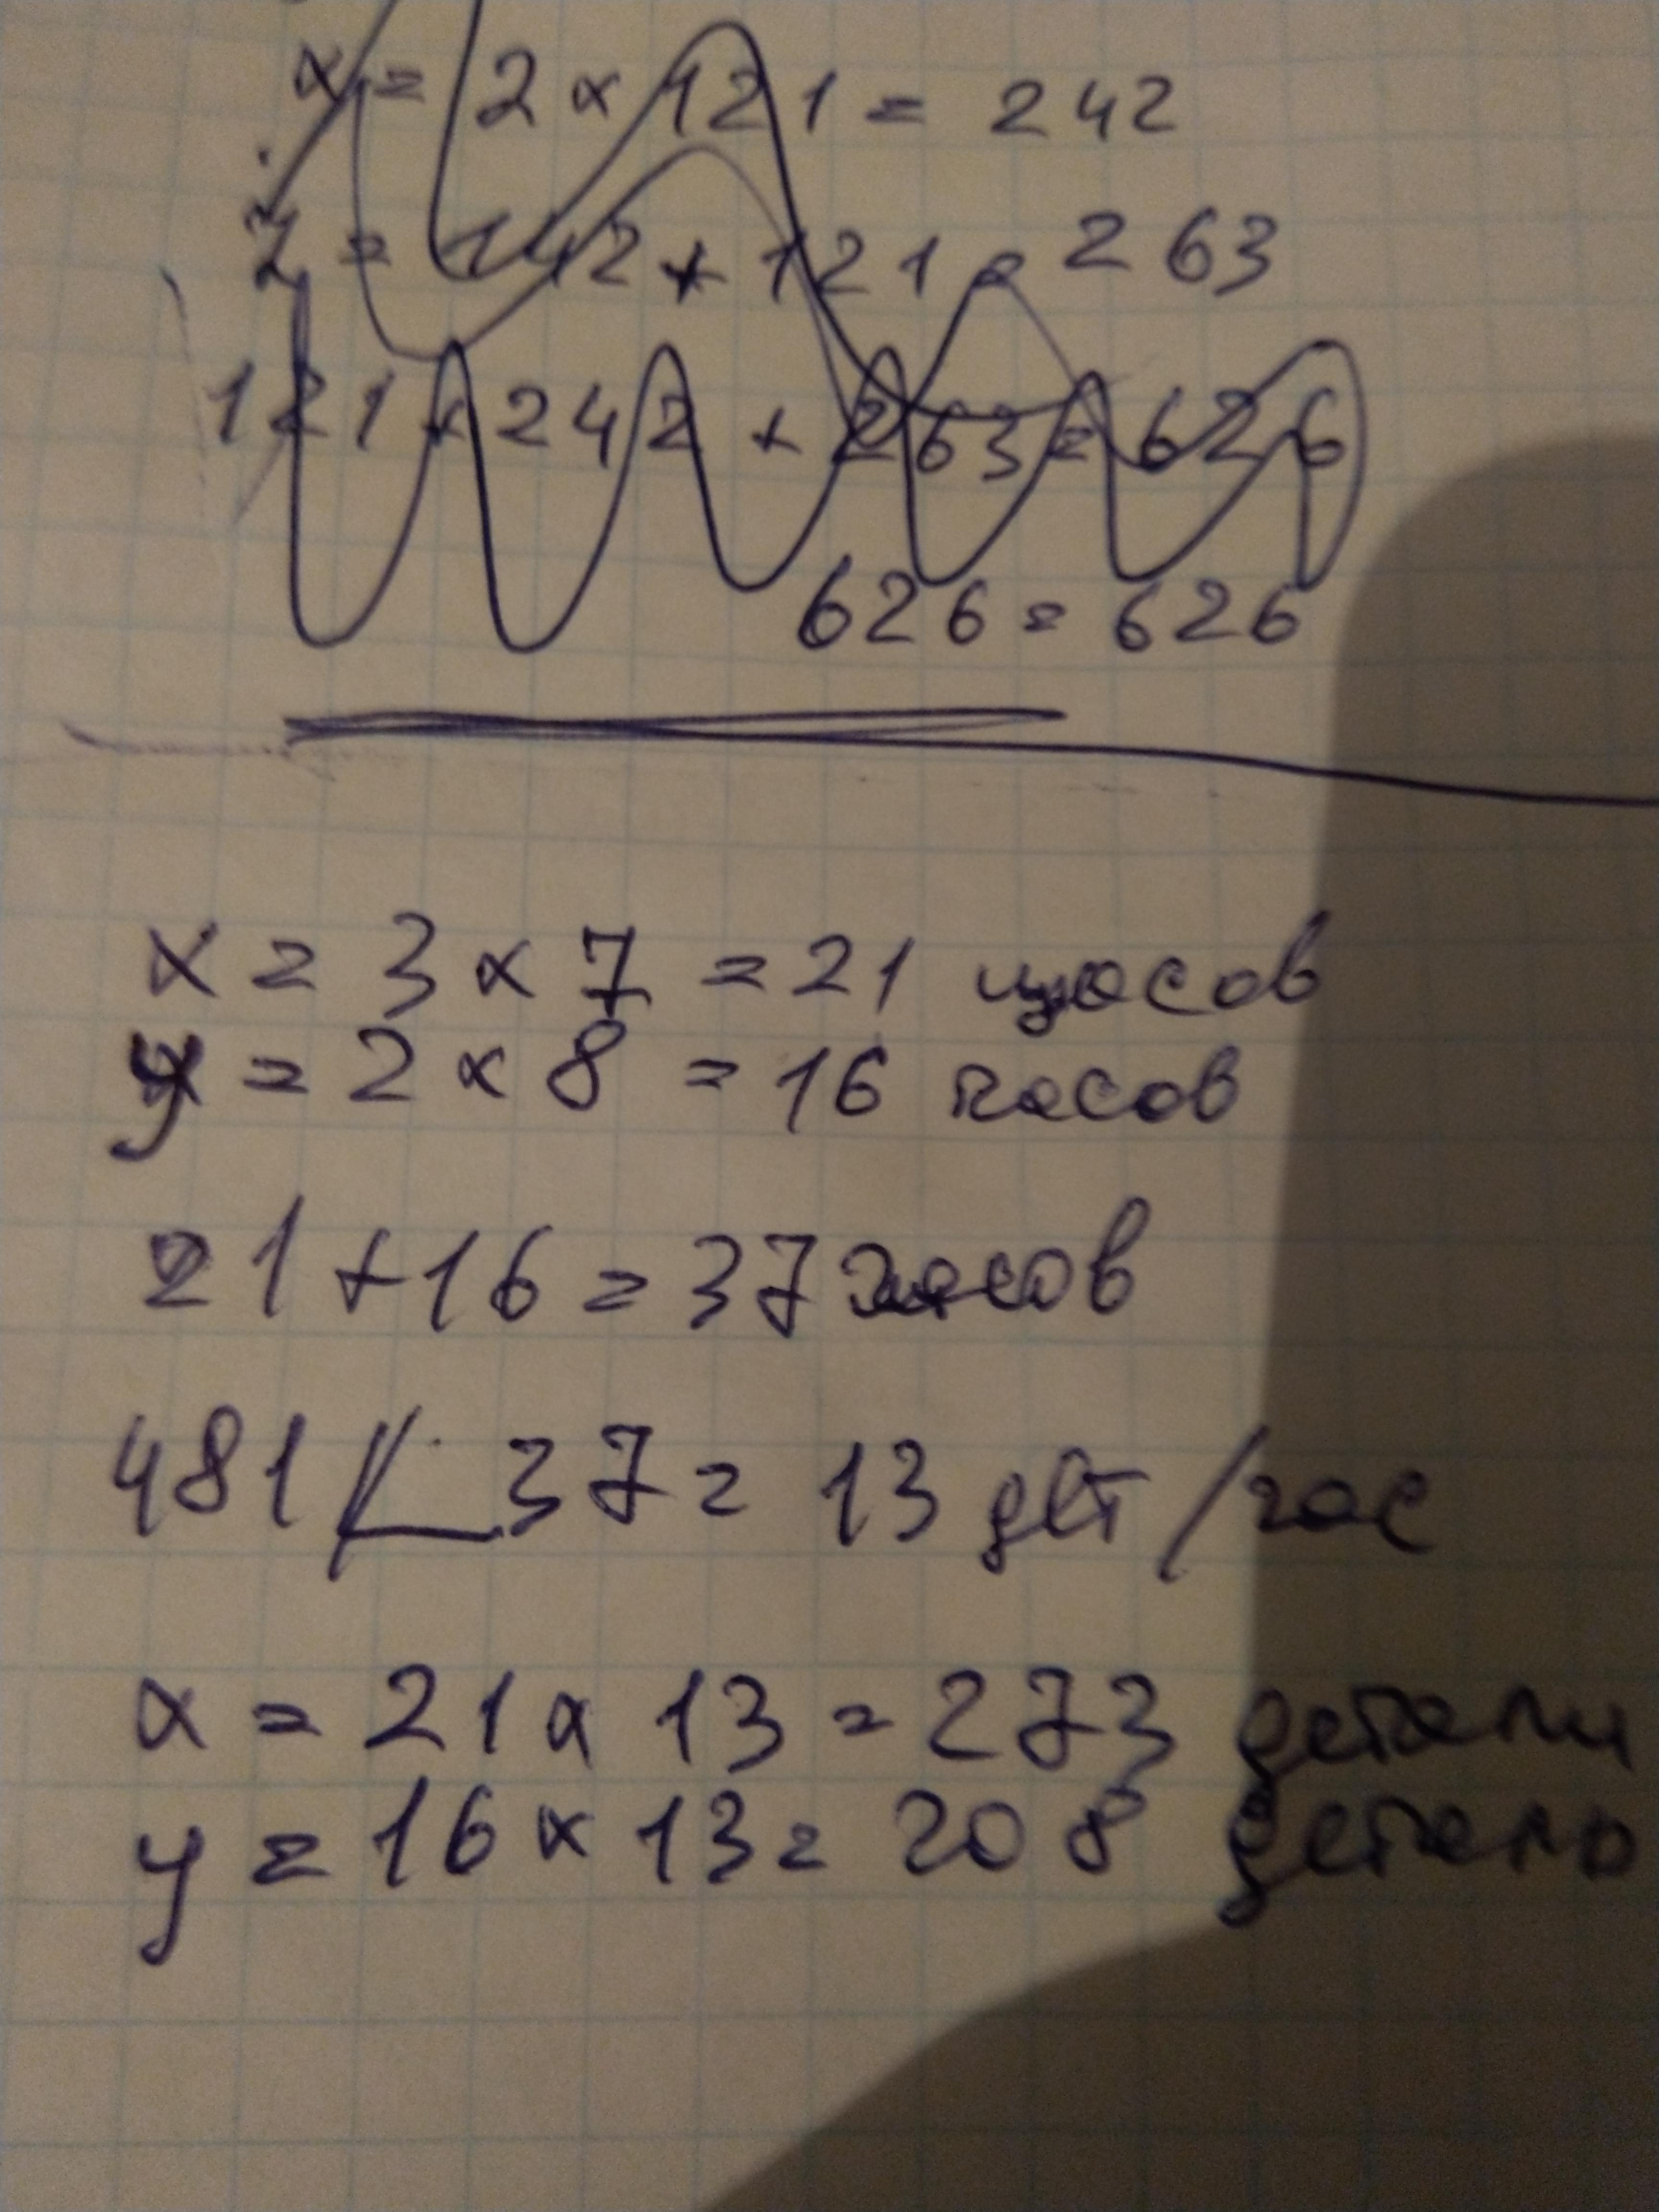 x = 2 x 121 = 242
z = 142 + 121 = 263
121 + 242 + 263 = 626
626 = 626
x = 3 x 7 = 21 часов
y = 2 x 8 = 16 часов
21 + 16 = 37 часов
481 / 37 = 13 дет/час
x = 21 x 13 = 273 детали
y = 16 x 13 = 208 деталь